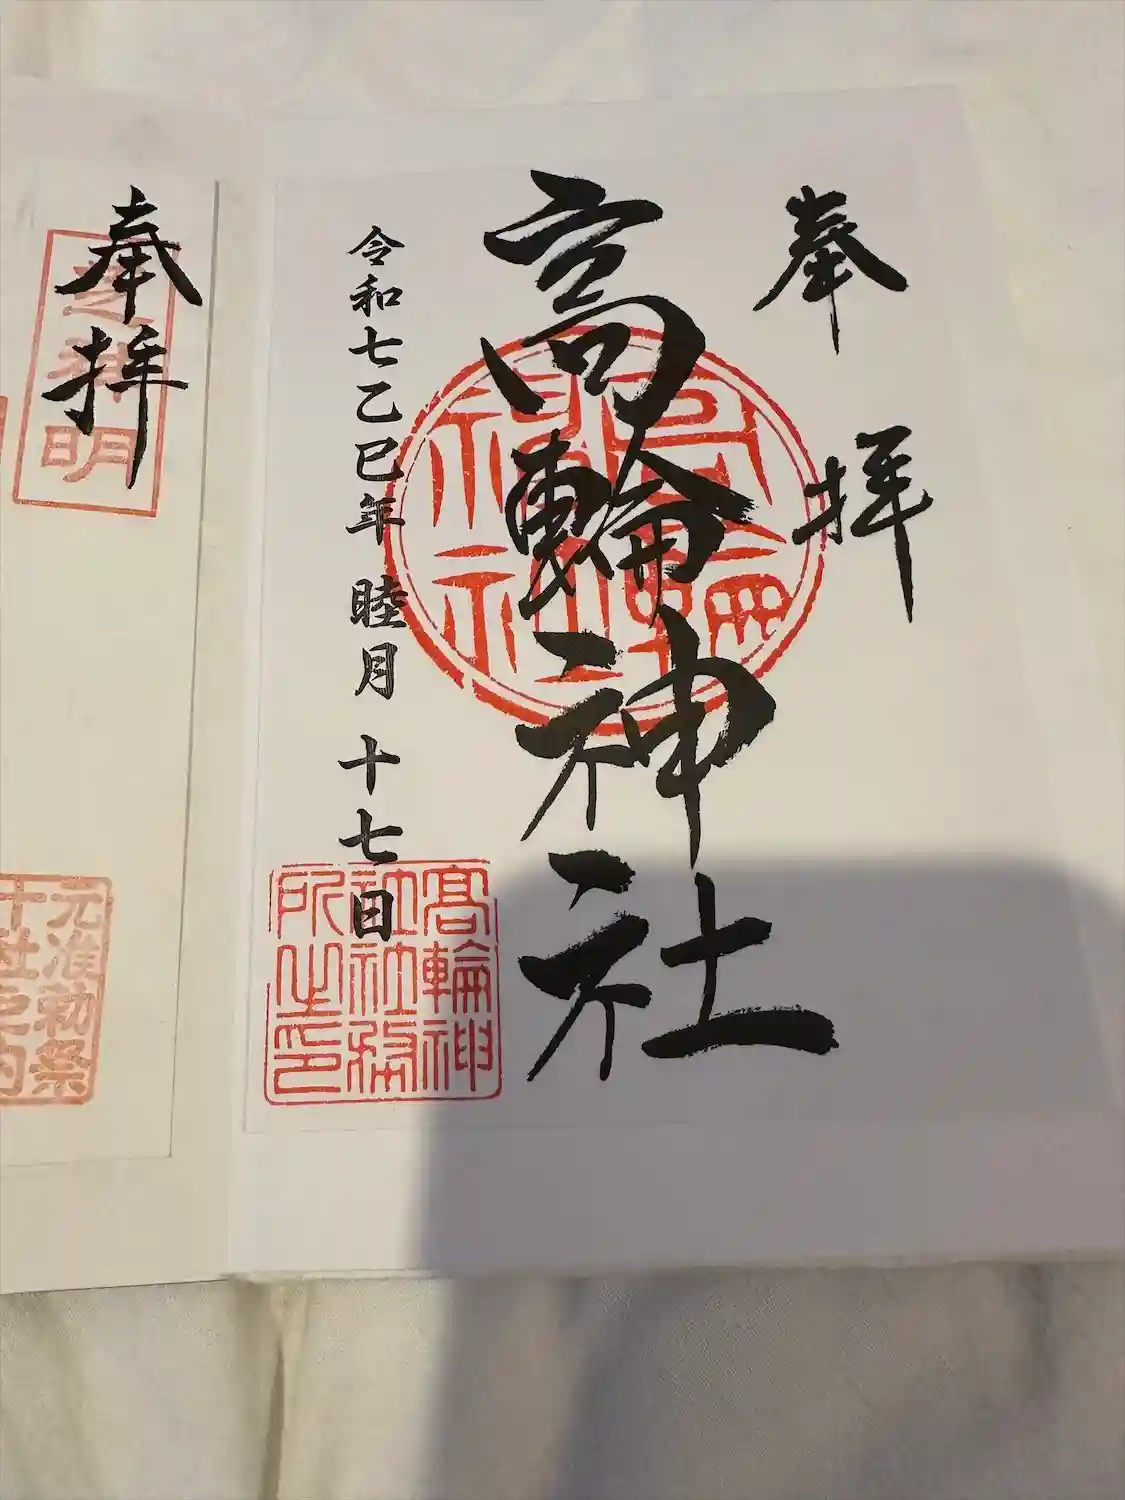 奉拝
高輪神社
高輪神社
令和七乙巳年 睦月 十七日
髙輪神
社社務
所之印
奉拝
芝神明
元准勅祭
十社之内